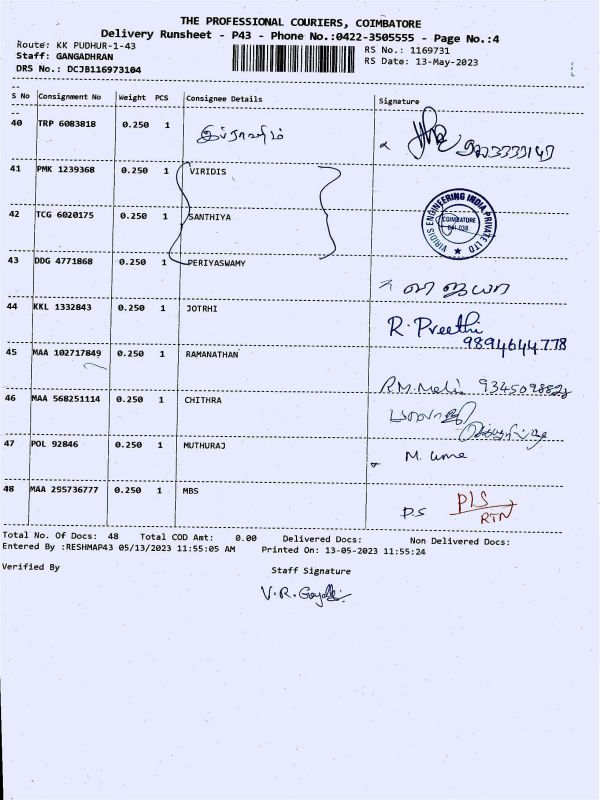 THE PROFESSIONAL COURIERS, COIMBATORE
Delivery Runsheet - P43 - Phone No.:0422-3505555 - Page No.:4
Route: KK PUDHUR-1-43 RS No.: 1169731
Staff: GANGADHRAN RS Date: 13-May-2023
DRS No.: DCJB116973104
S No Consignment No Weight PCS Consignee Details Signature
40 TRP 6083818 0.250 1 இப்ராஹிம்
41 PMK 1239368 0.250 1 VIRIDIS
VIRIDIS ENGINEERING INDIA PRIVATE LTD
COIMBATORE
641 038
42 TCG 6020175 0.250 1 SANTHIYA
43 DDG 4771868 0.250 1 PERIYASWAMY
விஜயா
44 KKL 1332843 0.250 1 JOTRHI R. Preethi
9894644778
45 MAA 102717849 0.250 1 RAMANATHAN
46 MAA 568251114 0.250 1 CHITHRA
47 POL 92846 0.250 1 MUTHURAJ M. Uma
48 MAA 295736777 0.250 1 MBS DS PIS
RTN
Total No. Of Docs: 48 Total COD Amt: 0.00 Delivered Docs: Non Delivered Docs:
Entered By :RESHMAP43 05/13/2023 11:55:05 AM Printed On: 13-05-2023 11:55:24
Verified By Staff Signature